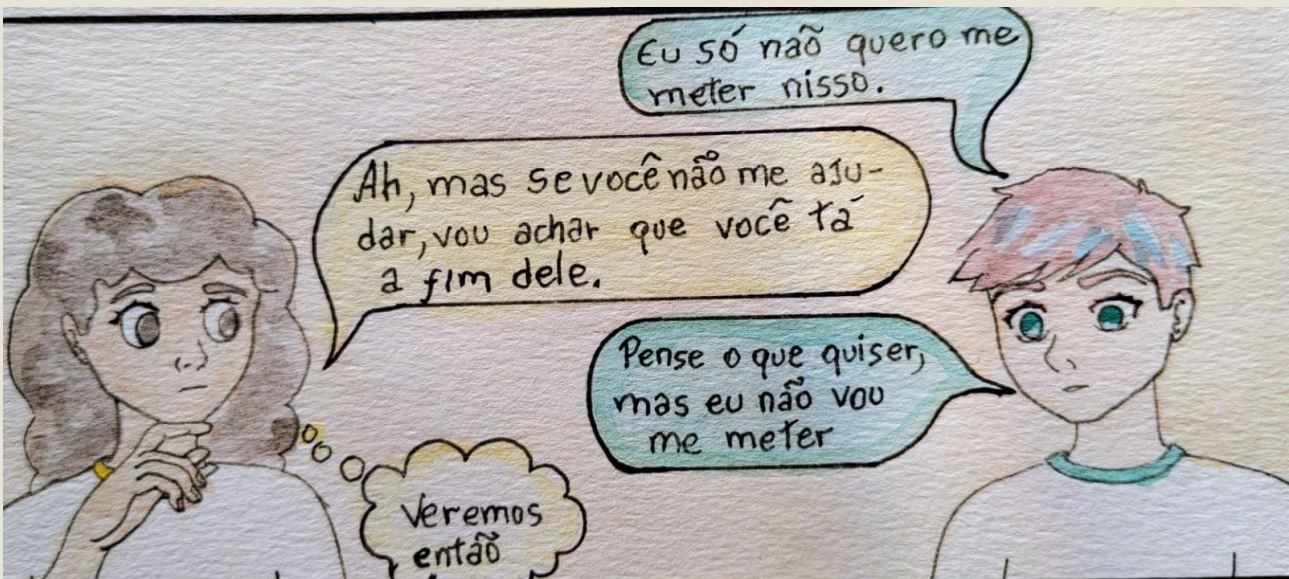 Eu só não quero me
meter nisso.
Ah, mas se você não me aju-
dar, vou achar que você tá
a fim dele.
Pense o que quiser,
mas eu não vou
me meter
Veremos
então